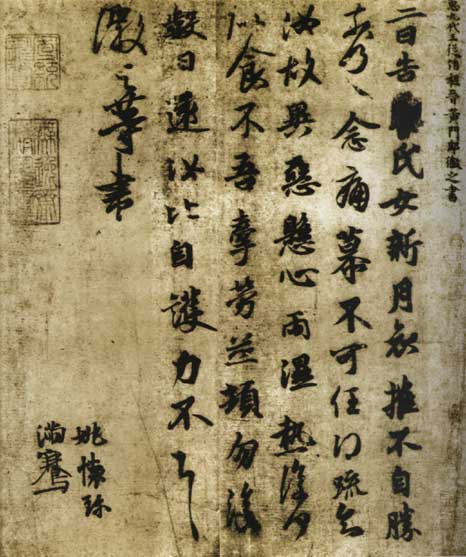 臣九代三從伯祖晉黃門郎徽之書
二日告氏女新月哀摧不自勝
奈何〻念痛慕不可任得疏知
汝故異惡懸心雨濕熱復何
似食不吾牽勞並頓勿復
數日還汝比自護力不具
徽之等書
姚懷珍
滿騫